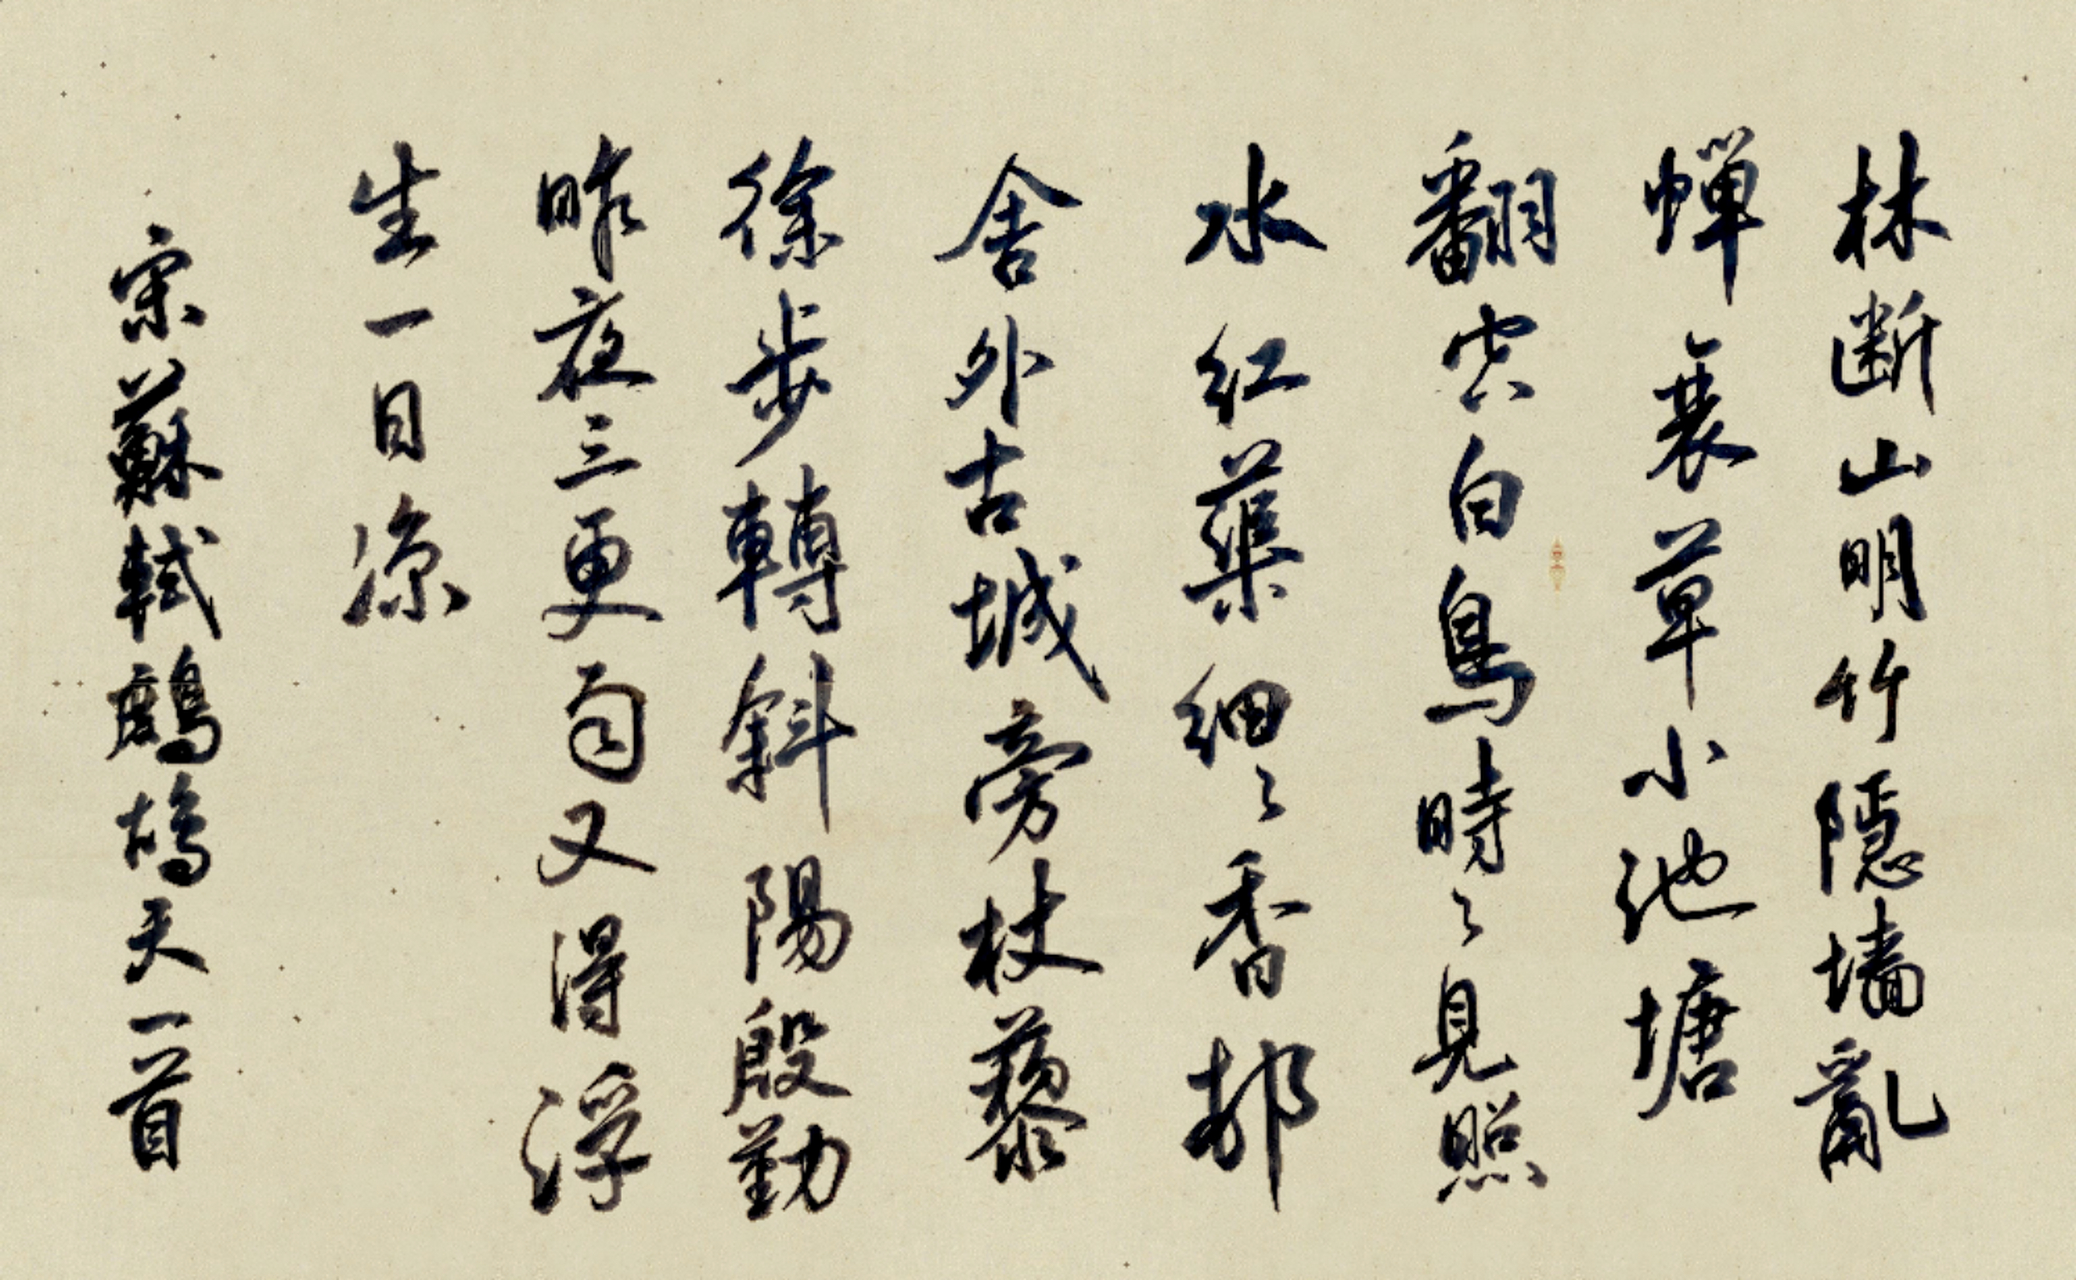 林断山明竹隱墙亂
蟬衰草小池塘
翻空白鳥時々見照
水紅蕖細々香邨
舍外古城旁杖藜
徐步轉斜陽殷勤
昨夜三更雨又得浮
生一日凉
宋蘇軾鷓鴣天一首